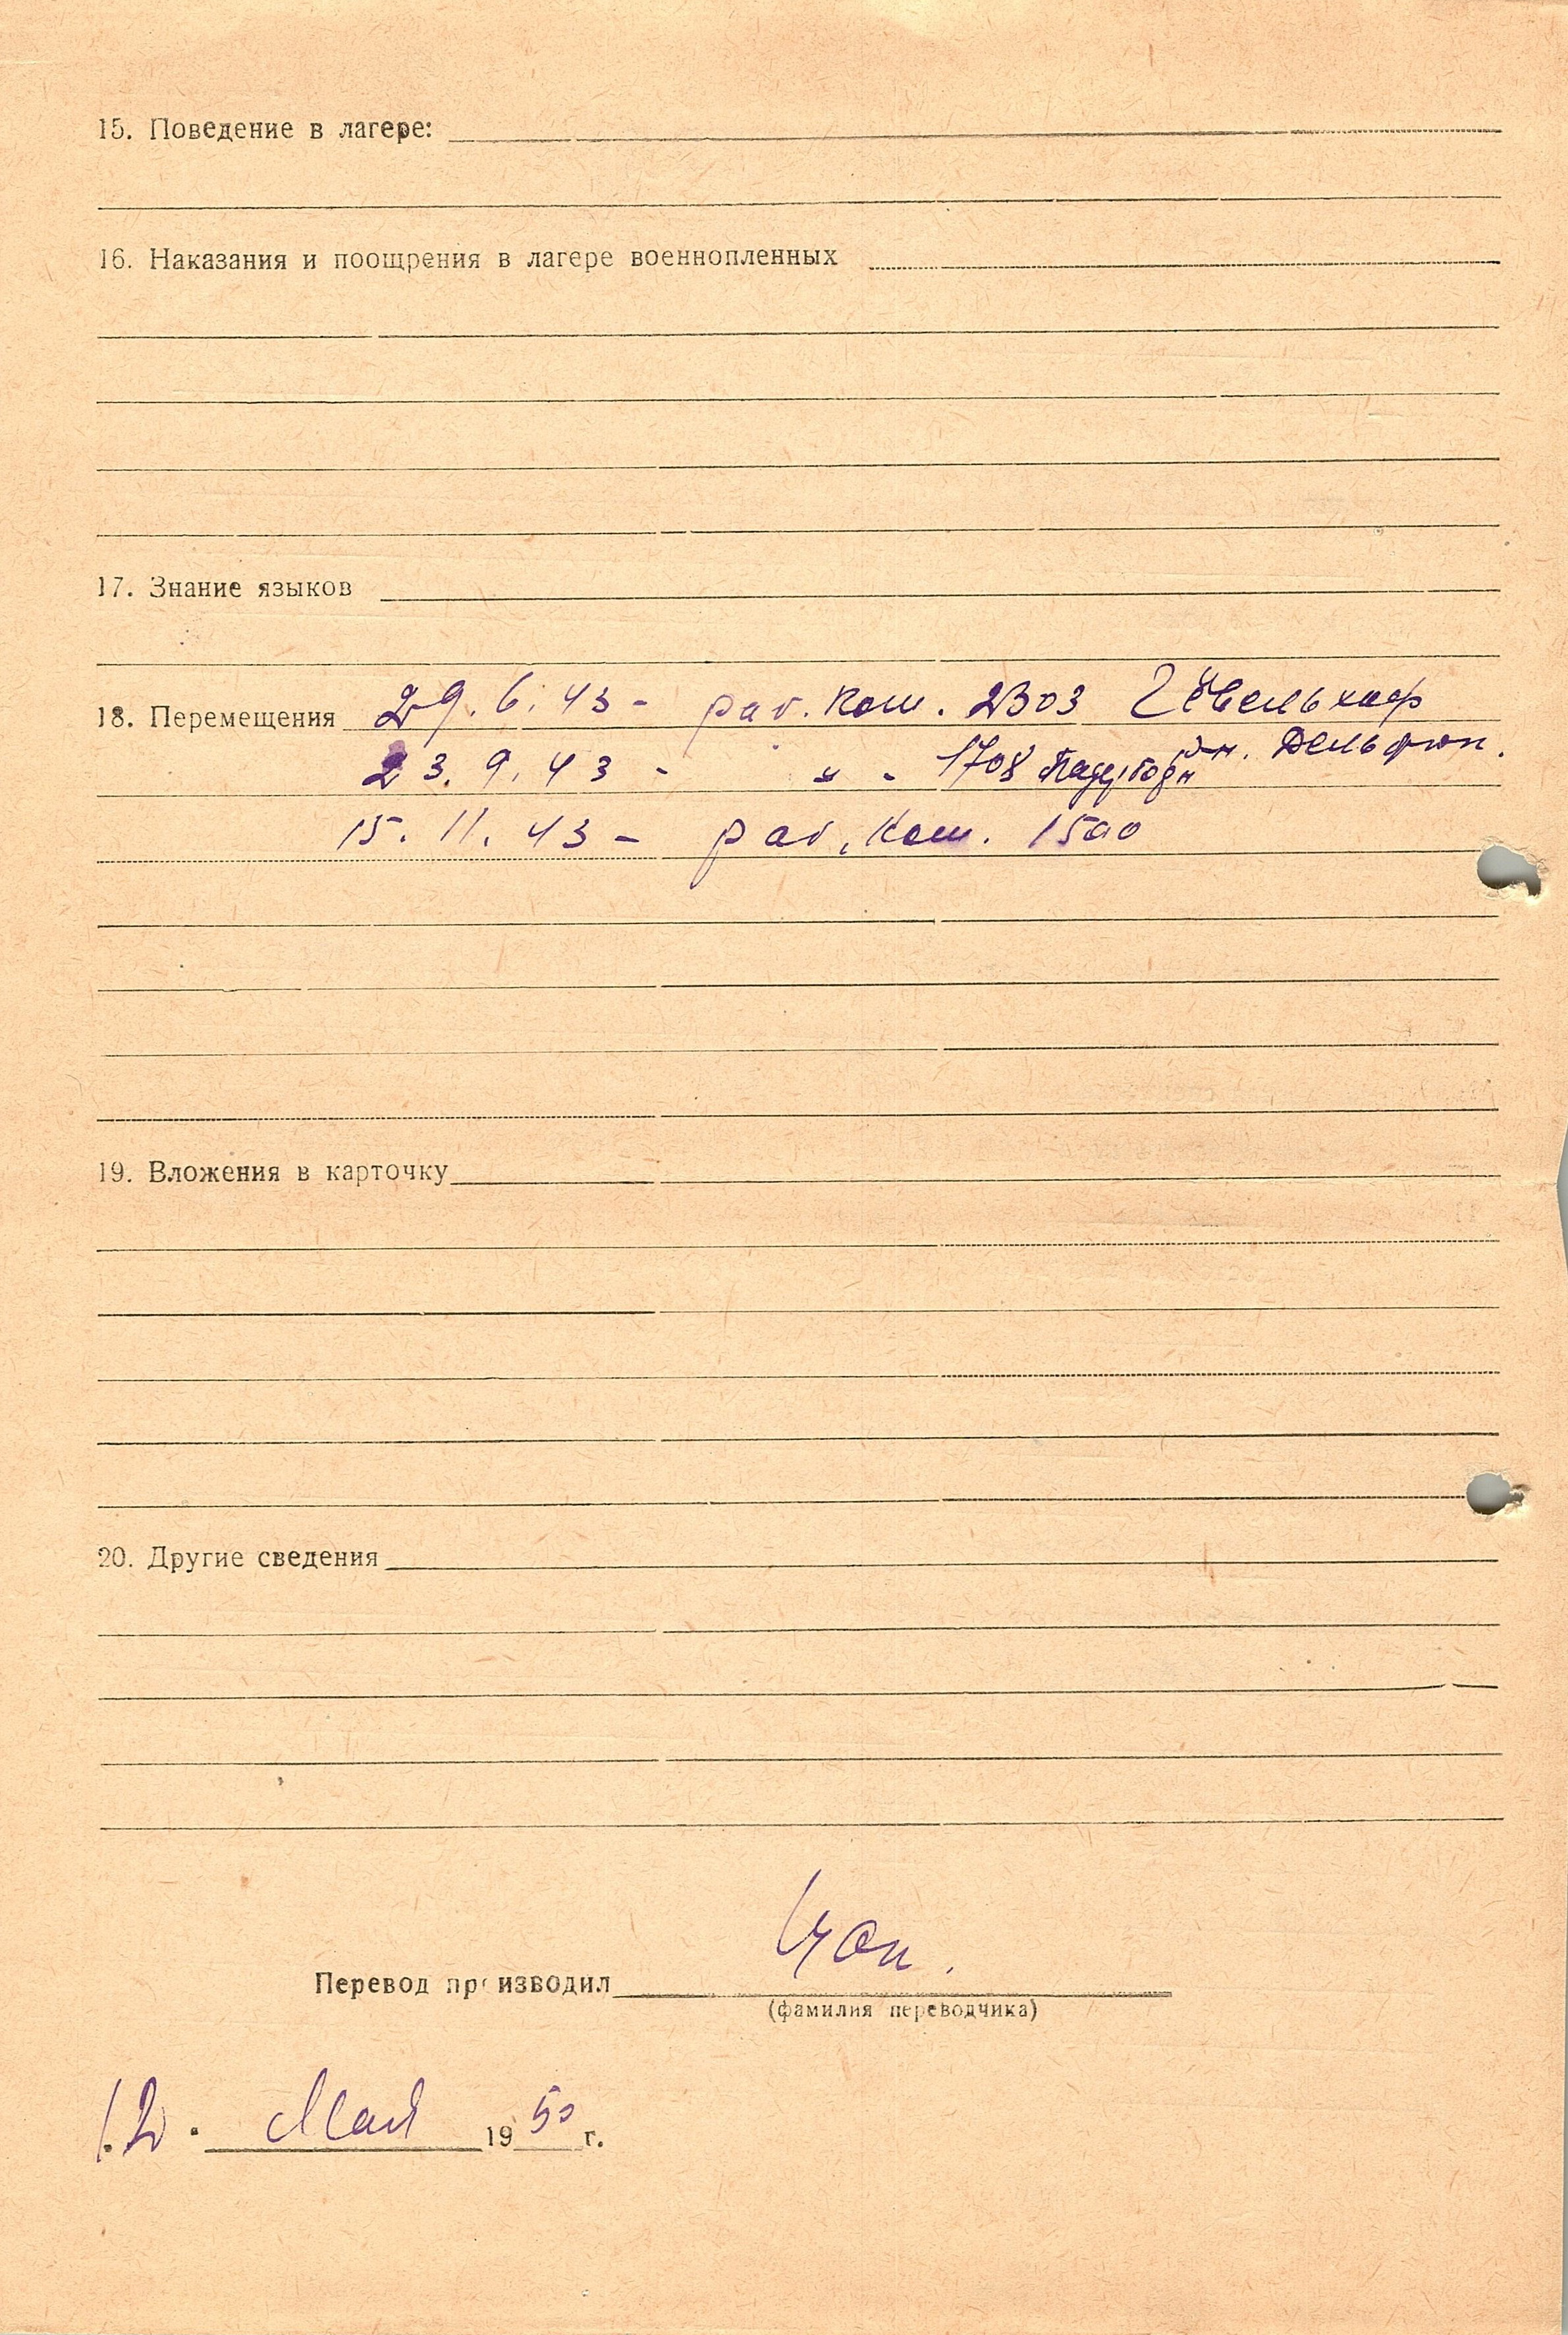 15. Поведение в лагере:
16. Наказания и поощрения в лагере военнопленных
17. Знание языков
18. Перемещения 29.6.43 - раб. ком. 2303
23.9.43 - " - 1708
15.11.43 - раб. ком. 1500
19. Вложения в карточку
20. Другие сведения
Перевод производил
(фамилия переводчика)
12. Мая 1950 г.